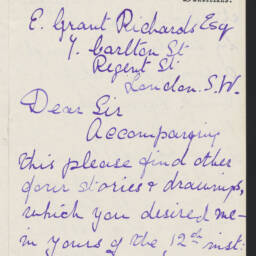 E. Grant Richards Esq
7. Carlton St
Regent St
London. S.W.
Dear Sir
Accompanying
this please find other
four stories & drawings,
which you desired me -
in yours of the 12th inst: